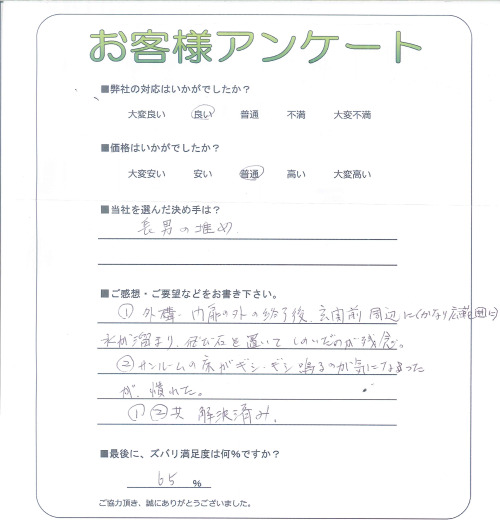 お客様アンケート
■弊社の対応はいかがでしたか？
大変良い 良い 普通 不満 大変不満
■価格はいかがでしたか？
大変安い 安い 普通 高い 大変高い
■当社を選んだ決め手は？
長男の推め
■ご感想・ご要望などをお書き下さい。
① 外構・内部の外の終了後、玄関前周辺に(かなり広範囲に)
水が溜まり、飛び石を置いてしのいだのが残念。
② サンルームの床がギシ・ギシ鳴るのが気になった
が、慣れた。
①②共 解決済み。
■最後に、ズバリ満足度は何%ですか？
65 %
ご協力頂き、誠にありがとうございました。